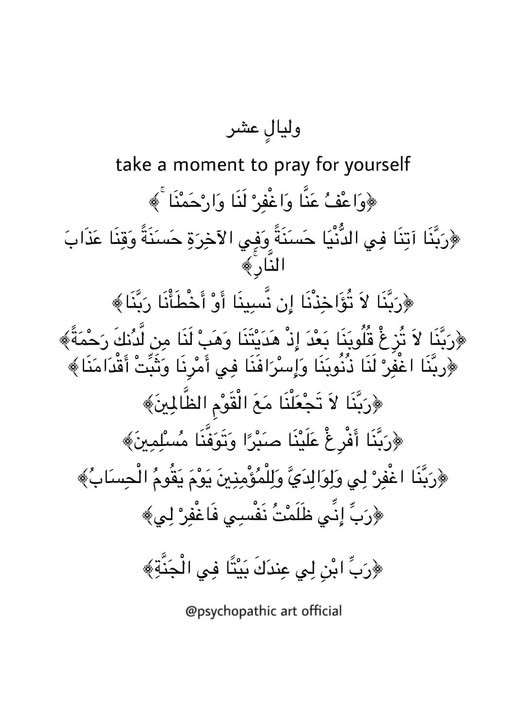 وليالٍ عشر
take a moment to pray for yourself
﴿وَاعْفُ عَنَّا وَاغْفِرْ لَنَا وَارْحَمْنَا ۚ﴾
﴿رَبَّنَا اَتِنَا فِي الدُّنْيَا حَسَنَةً وَفِي الآخِرَةِ حَسَنَةً وَقِنَا عَذَابَ
النَّارِۚ﴾
﴿رَبَّنَا لاَ تُؤَاخِذْنَا إِن نَّسِينَا أَوْ أَخْطَأْنَا رَبَّنَا﴾
﴿رَبَّنَا لاَ تُزِغْ قُلُوبَنَا بَعْدَ إِذْ هَدَيْتَنَا وَهَبْ لَنَا مِن لَّدُنكَ رَحْمَةً﴾
﴿ربَّنَا اغْفِرْ لَنَا ذُنُوبَنَا وَإِسْرَافَنَا فِي أَمْرِنَا وَثَبِّتْ أَقْدَامَنَا﴾
﴿رَبَّنَا لاَ تَجْعَلْنَا مَعَ الْقَوْمِ الظَّالِمِينَ﴾
﴿رَبَّنَا أَفْرِغْ عَلَيْنَا صَبْرًا وَتَوَفَّنَا مُسْلِمِينَ﴾
﴿رَبَّنَا اغْفِرْ لِي وَلِوَالِدَيَّ وَلِلْمُؤْمِنِينَ يَوْمَ يَقُومُ الْحِسَابُ﴾
﴿رَبِّ إِنِّي ظَلَمْتُ نَفْسِي فَاغْفِرْ لِي﴾
﴿رَبِّ ابْنِ لِي عِندَكَ بَيْتًا فِي الْجَنَّةِ﴾
@psychopathic art official